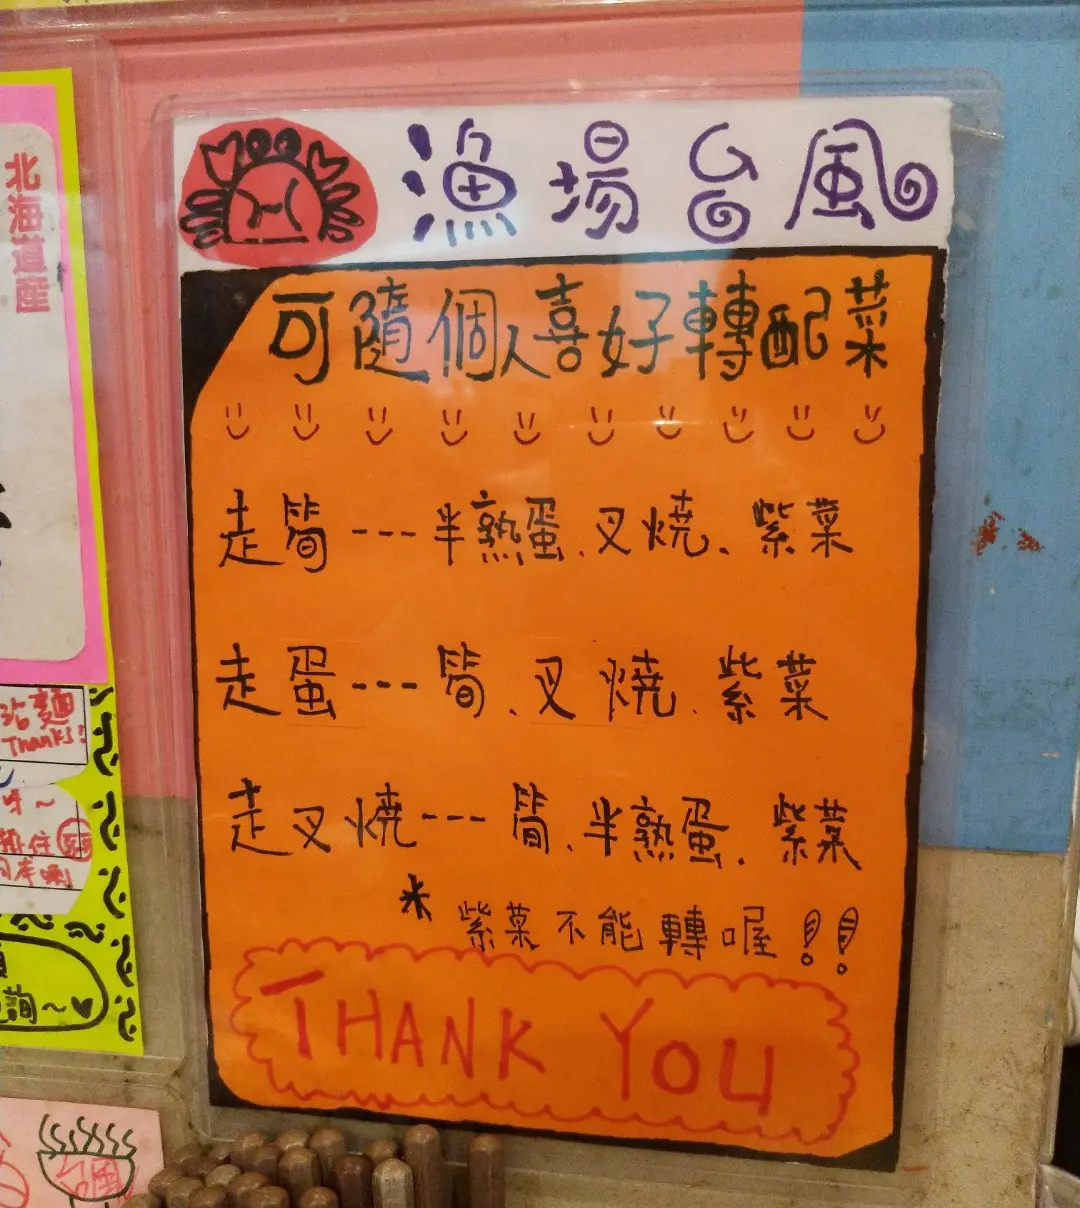 漁場台風
可隨個人喜好轉配菜
走筍---半熟蛋、叉燒、紫菜
走蛋---筍、叉燒、紫菜
走叉燒---筍、半熟蛋、紫菜
*紫菜不能轉喔!!
THANK YOU
北海道産
沾麵
Thanks!
呀~
詢~